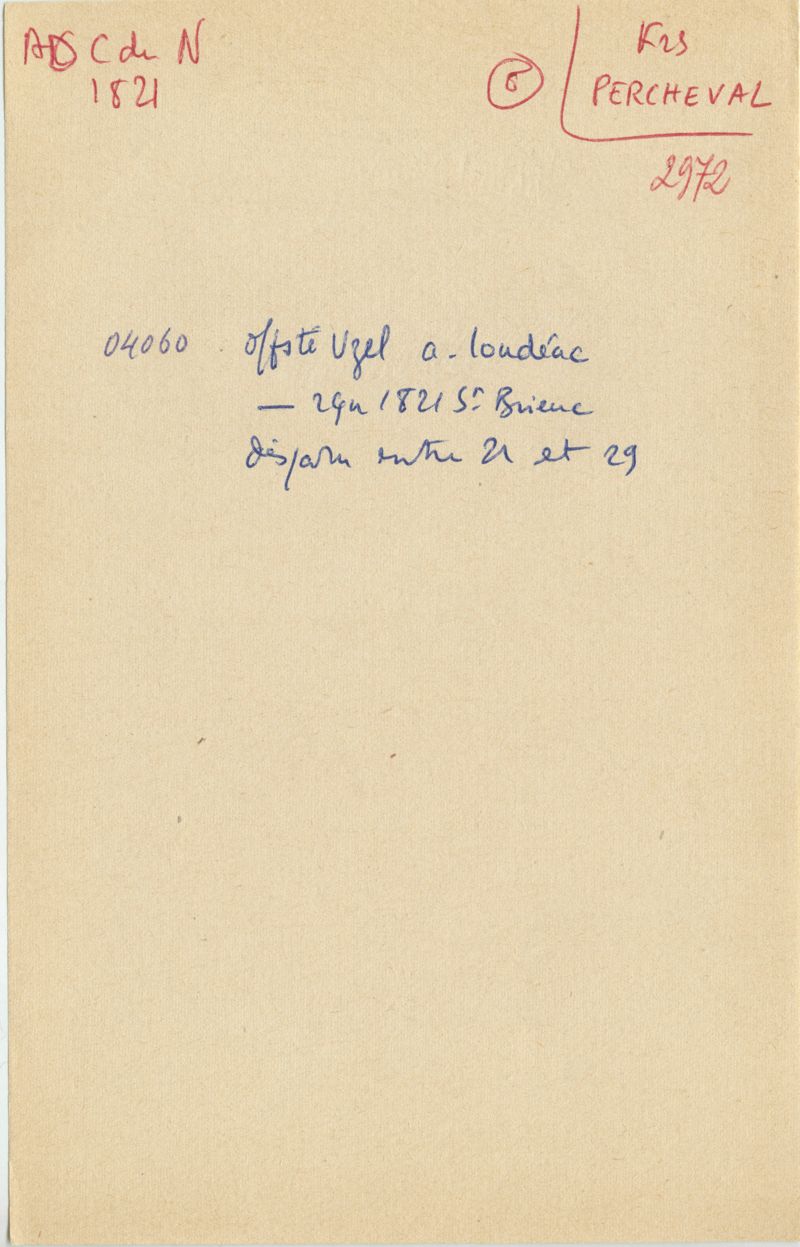 ADS C du N
1821
8
Frs
PERCHEVAL
2972
04060 offsté Uzel a. Loudéac
— 1821 St Brieuc
disparu entre 21 et 29